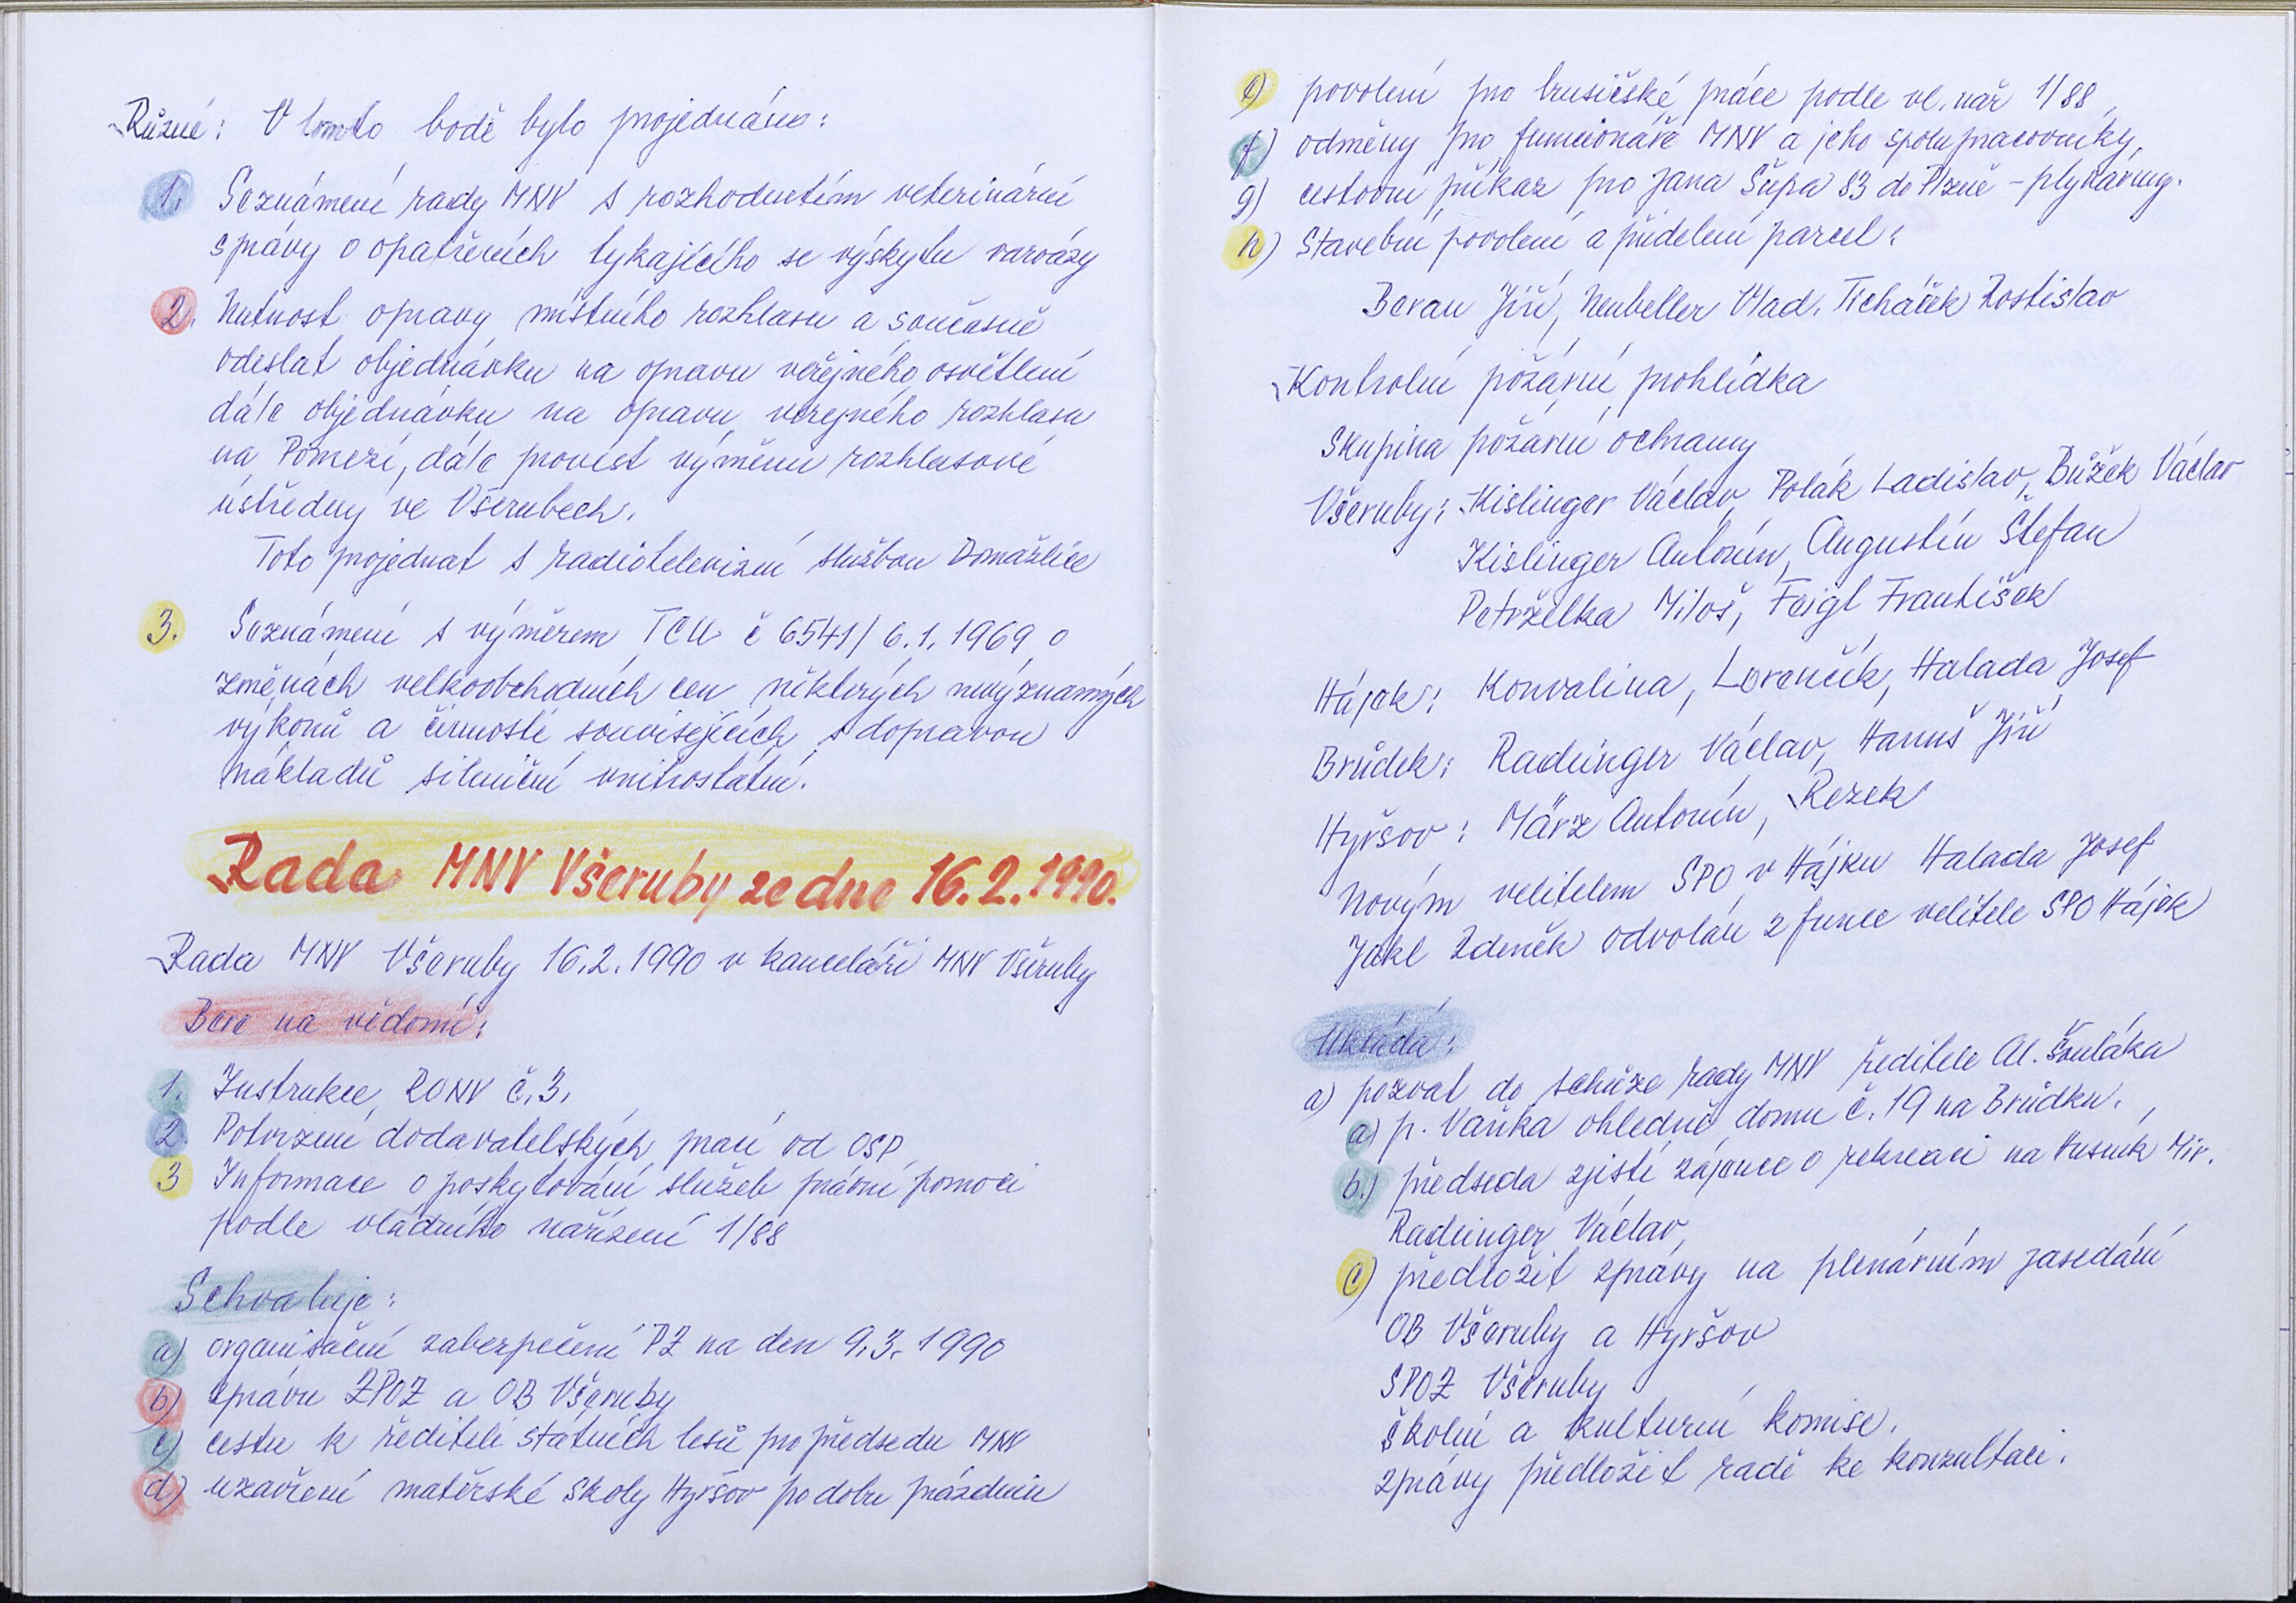 Různé: V tomto bodě bylo projednáno:
1. Seznámení rady MNV s rozhodnutím veterinární
správy o opatřeních týkajícího se výskytu varoázy
2. Nutnost opravy místního rozhlasu a současně
odeslat objednávku na opravu veřejného osvětlení
dále objednávku na opravu veřejného rozhlasu
na Pomezí, dále provést výměnu rozhlasové
ústředny ve Všerubech.
Toto projednat s radiotelevizní službou Domažlice
3. Seznámení s výměrem TCU č 6541/6.1.1969 o
změnách velkoobchodních cen některých nevýznamných
výkonů a činností souvisejících s dopravou
nákladů silniční vnitrostátní.
Rada MNV Všeruby ze dne 16.2.1990.
Rada MNV Všeruby 16.2.1990 v kanceláři MNV Všeruby
Bere na vědomí:
1. Instrukce RONV č.3.
2. Potvrzení dodavatelských prací od OSP
3 Informace o poskytování služeb právní pomoci
podle vládního nařízení 1/88
Schvaluje:
a) organisační zabezpečení PZ na den 9.3.1990
b) zprávu ZPOZ a OB Všeruby
c) cestu k řediteli státních lesů pro předsedu MNV
d) uzavření mateřské školy Hyršov po dobu prázdnin
e) povolení pro brusičské práce podle vl. nař 1/88,
f) odměny pro funcionáře MNV a jeho spolupracovníky,
g) cestovní příkaz pro Jana Šupa 83 do Plzně - plynárny.
h) Stavební povolení a přidelení parcel:
Beran Jiří, Neubeller Vlad. Ticháček Rostislav
Kontrolní požární prohlídka
Skupina požární ochrany
Všeruby: Kislinger Václav, Polák Ladislav, Bůžek Václav
Kislinger Antonín, Augustín Štefan
Petrželka Miloš, Feigl František
Hájek: Konvalina, Lorenčík, Halada Josef
Brůdek: Radinger Václav, Hanuš Jiří
Hyršov: März Antonín, Rezek
Novým velitelem SPO v Hájku Halada Josef
Jakl Zdeněk odvolán z funce velitele SPO Hájek
Ukládá:
a) pozvat do schůze rady MNV ředitele Al. Šouláka
a) p. Vaňka ohledně domu č. 19 na Brůdku.,
b.) předseda zjistí zájemce o rekreaci na Husník Mir.
Radinger Václav,
c) předložit zprávy na plenárním zasedání
OB Všeruby a Hyršov
SPOZ Všeruby
školní a kulturní komise.
zprávy předložit radě ke konzultaci.